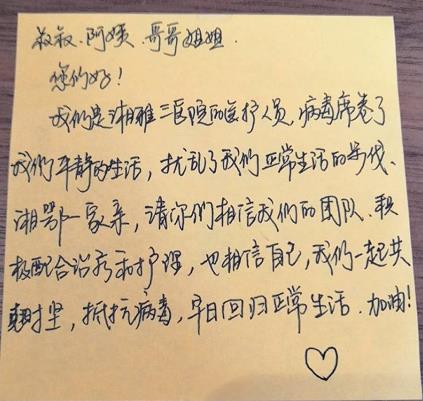 叔叔、阿姨、哥哥姐姐.
您们好!
我们是湘雅三医院的医护人员,病毒席卷了
我们平静的生活,扰乱了我们正常生活的步伐、
湘鄂一家亲,请你们相信我们的团队、积
极配合治疗和护理,也相信自己,我们一起共
克时坚,抵抗病毒,早日回归正常生活.加油!